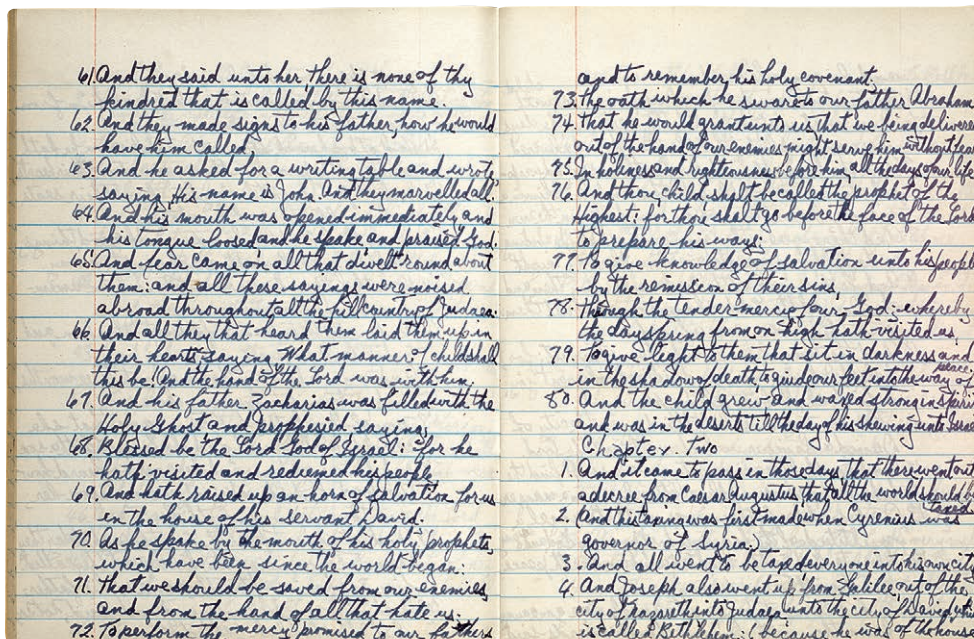 61. And they said unto her, there is none of thy
kindred that is called by this name.
62. And they made signs to his father, how he would
have him called,
63. And he asked for a writing table and wrote
saying, His name is John. And they marvelled all.
64. And his mouth was opened immediately and
his tongue loosed and he spake and praised God.
65. And fear came on all that dwelt round about
them: and all these sayings were noised
abroad throughout all the hill country of Judaea.
66. And all they that heard them laid them up in
their hearts, saying What manner of child shall
this be! And the hand of the Lord was with him.
67. And his father Zacharias was filled with the
Holy Ghost and prophesied, saying;
68. Blessed be the Lord God of Israel: for he
hath visited and redeemed his people
69. And hath raised up an horn of salvation for us
in the house of his servant David.
70. As he spake by the mouth of his holy prophets,
which have been since the world began:
71. that we should be saved from our enemies
and from the hand of all that hate us.
72. To perform the mercy promised to our fathers
and to remember his holy covenant;
73. the oath which he sware to our father Abraham
74. that he would grant unto us that we being delivered
out of the hand of our enemies might serve him without fear
75. In holiness and righteousness before him, all the days of our life
76. And thou, child shalt be called the prophet of the
Highest: for thou shalt go before the face of the Lord
to prepare his ways;
77. To give knowledge of salvation unto his people
by the remission of their sins,
78. Through the tender mercy of our God: whereby
the dayspring from on high hath visited us
79. To give light to them that sit in darkness and
in the shadow of death, to guide our feet into the way of peace.
80. And the child grew and waxed strong in spirit
and was in the deserts till the day of his shewing unto Israel
Chapter. Two
1. And it came to pass in those days that there went out
a decree from Caesar Augustus that all the world should be taxed
2. And this taxing was first made when Cyrenius was
governor of Syria.)
3. And all went to be taxed, everyone into his own city
4. And Joseph also went up from Galilee, out of the
city of Nazareth into Judaea unto the city of David which
is called Bethlehem: (because he was of the house